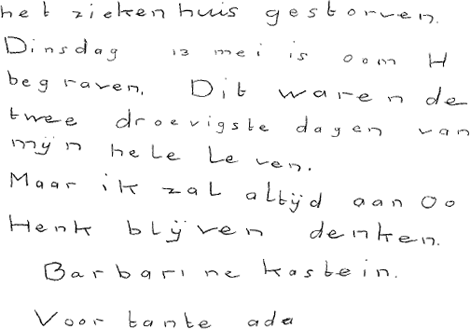 het ziekenhuis gestorven.
Dinsdag 13 mei is oom H
begraven. Dit waren de
twee droevigste dagen van
mijn hele leven.
Maar ik zal altijd aan Oo
Henk blijven denken.
Barbarine kastein.
Voor tante ada